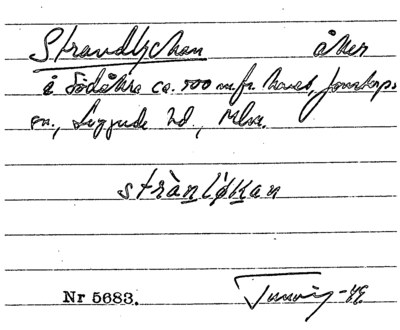 Strandlyckan åker
i Södåkra ca. 500 m fr. havet, Jonstorps
sn., Luggude hd., Mlm.
strànlỳkan
Nr 5683.
-49.